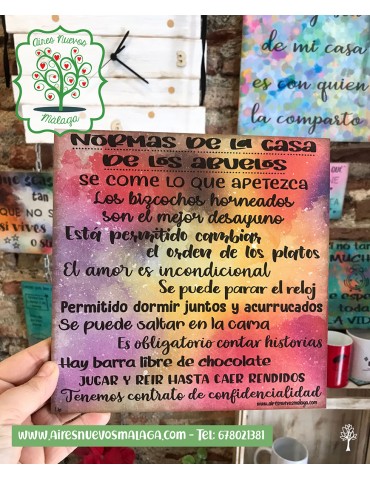 Aires Nuevos
Málaga
de mi casa
es con quien
la comparto
NORMAS DE LA CASA
DE LOS ABUELOS
SE COME LO QUE APETEZCA
Los bizcochos horneados
son el mejor desayuno
Está permitido cambiar
el orden de los platos
El amor es incondicional
Se puede parar el reloj
Permitido dormir juntos y acurrucados
Se puede saltar en la cama
Es obligatorio contar historias
Hay barra libre de chocolate
JUGAR Y REIR HASTA CAER RENDIDOS
Tenemos contrato de confidencialidad
www.airesnuevosmalaga.com
www.airesnuevosmalaga.com - Tel: 678021381